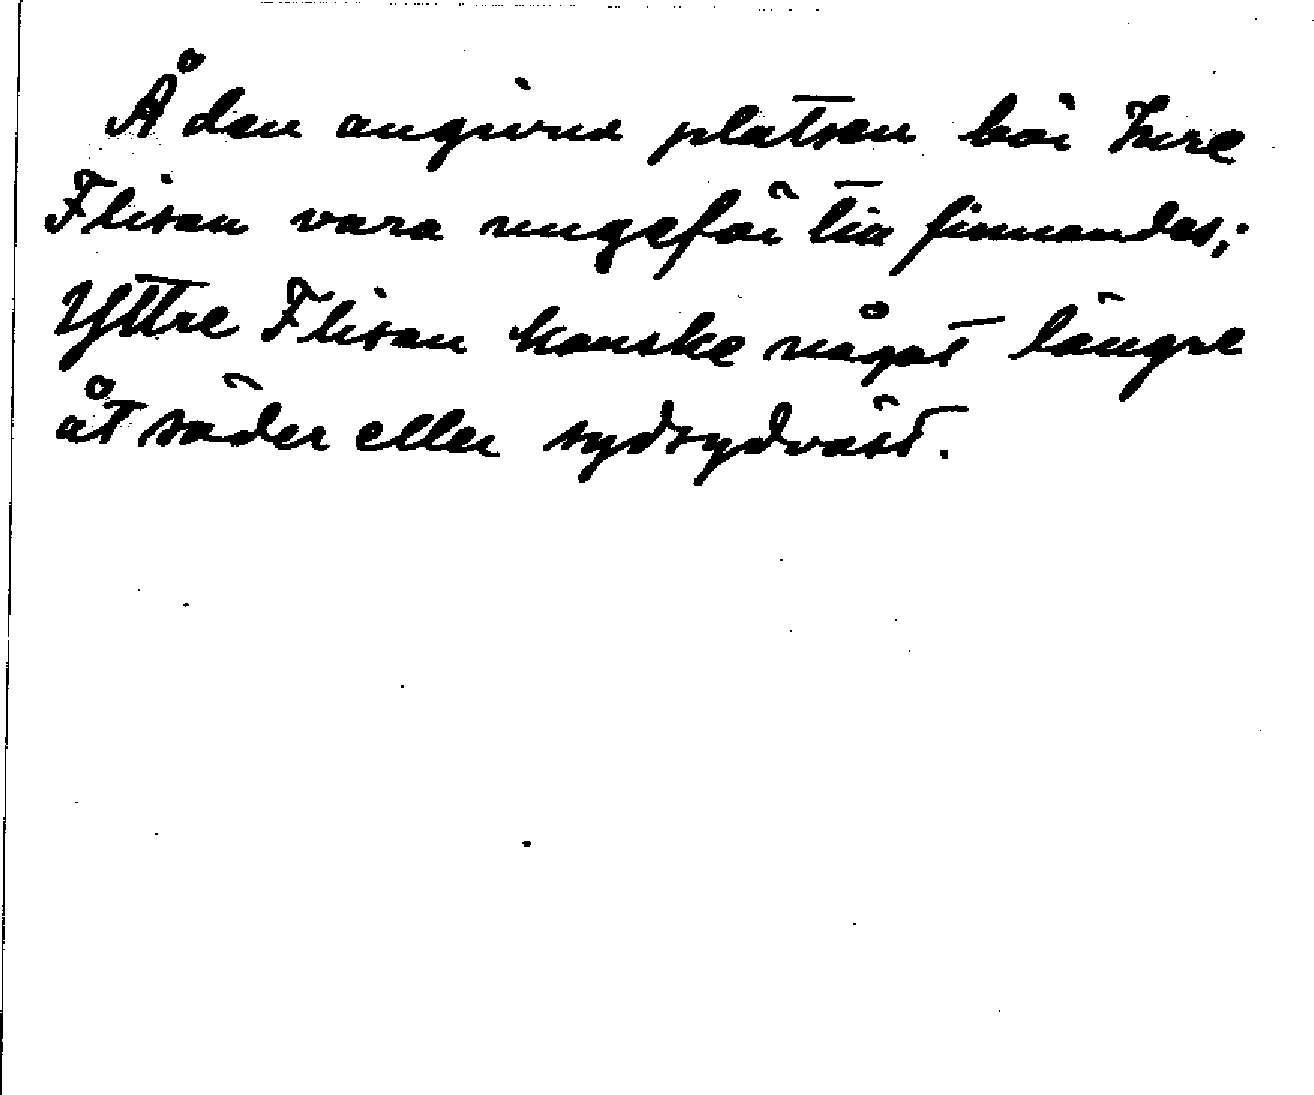 Å den angivna platsen bör Inre
Flisan vara ungefär tia finnandes;
Yttre Flisan kanske något längre
åt söder eller sydsydväst.